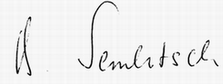 B. Semlitsch